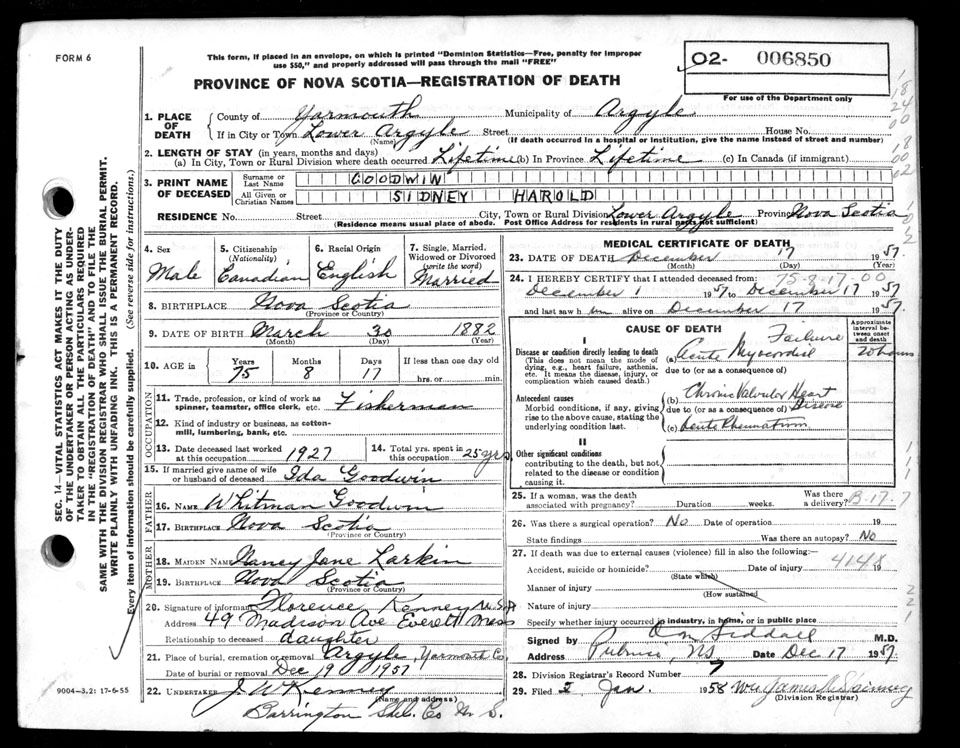 FORM 6
This form, if placed in an envelope, on which is printed "Dominion Statistics—Free, penalty for improper
use $50," and properly addressed will pass through the mail "FREE"
02- 006850
PROVINCE OF NOVA SCOTIA—REGISTRATION OF DEATH
For use of the Department only
1. PLACE OF DEATH
County of Yarmouth Municipality of Argyle
If in City or Town Lower Argyle Street House No.
(Name) (If death occurred in a hospital or institution, give the name instead of street and number)
2. LENGTH OF STAY (in years, months and days)
(a) In City, Town or Rural Division where death occurred Lifetime (b) In Province Lifetime (c) In Canada (if immigrant)
3. PRINT NAME OF DECEASED
Surname or Last Name GOODWIN
All Given or Christian Names SIDNEY HAROLD
RESIDENCE No. Street City, Town or Rural Division Lower Argyle Province Nova Scotia
(Residence means usual place of abode. Post Office Address for residents in rural parts not sufficient)
4. Sex Male
5. Citizenship (Nationality) Canadian
6. Racial Origin English
7. Single, Married, Widowed or Divorced (write the word) Married
8. BIRTHPLACE Nova Scotia
(Province or Country)
9. DATE OF BIRTH March 30 1882
(Month) (Day) (Year)
10. AGE in Years 75 Months 8 Days 17 If less than one day old hrs. or min.
OCCUPATION
11. Trade, profession or kind of work as
spinner, teamster, office clerk, etc. Fisherman
12. Kind of industry or business, as cotton-
mill, lumbering, bank, etc.
13. Date deceased last worked at this occupation 1927
14. Total yrs. spent in this occupation 25 yrs
15. If married give name of wife
or husband of deceased Ida Goodwin
FATHER
16. NAME Whitman Goodwin
17. BIRTHPLACE Nova Scotia
(Province or Country)
MOTHER
18. MAIDEN NAME Nancy Jane Larkin
19. BIRTHPLACE Nova Scotia
(Province or Country)
20. Signature of informant Florence Kenney
Address 49 Madison Ave Everett Mass
Relationship to deceased daughter
21. Place of burial, cremation or removal Argyle, Yarmouth Co.
Date of burial or removal Dec 19 1957
22. UNDERTAKER J. W. Kenney
(Name and address)
Barrington Shel. Co N. S.
9004-3.2: 17-6-55
MEDICAL CERTIFICATE OF DEATH
23. DATE OF DEATH December 17 1957
(Month) (Day) (Year)
75-8-17-00
24. I HEREBY CERTIFY that I attended deceased from:
December 1 1957 to December 17 1957
and last saw him alive on December 17 1957
CAUSE OF DEATH
Approximate interval between onset and death
I
Disease or condition directly leading to death
(This does not mean the mode of dying, e.g., heart failure, asthenia, etc. It means the disease, injury, or complication which caused death.)
(a) Acute Myocardial Failure 20 hours
due to (or as a consequence of)
Antecedent causes
Morbid conditions, if any, giving rise to the above cause, stating the underlying condition last.
(b) Chronic Valvular Heart Disease
due to (or as a consequence of)
(c) Acute Rheumatism
II
Other significant conditions
contributing to the death, but not related to the disease or condition causing it.
25. If a woman, was the death associated with pregnancy? Duration weeks. Was there a delivery?
B-17-7
26. Was there a surgical operation? No Date of operation 19
State findings Was there an autopsy? No
27. If death was due to external causes (violence) fill in also the following:—
Accident, suicide or homicide? Date of injury 19
4148
(State which)
Manner of injury
(How sustained)
Nature of injury
Specify whether injury occurred in industry, in home, or in public place
Signed by Siddall M.D.
Address Pubnico, NS Date Dec 17 1957
28. Division Registrar's Record Number 7
29. Filed 2 Jan. 1958
(Division Registrar)
SEC. 14—VITAL STATISTICS ACT MAKES IT THE DUTY
OF THE UNDERTAKER OR PERSON ACTING AS UNDER-
TAKER TO OBTAIN ALL THE PARTICULARS REQUIRED
IN THE "REGISTRATION OF DEATH" AND TO FILE THE
SAME WITH THE DIVISION REGISTRAR WHO SHALL ISSUE THE BURIAL PERMIT.
WRITE PLAINLY WITH UNFADING INK. THIS IS A PERMANENT RECORD.
Every item of information should be carefully supplied. (See reverse side for instructions.)